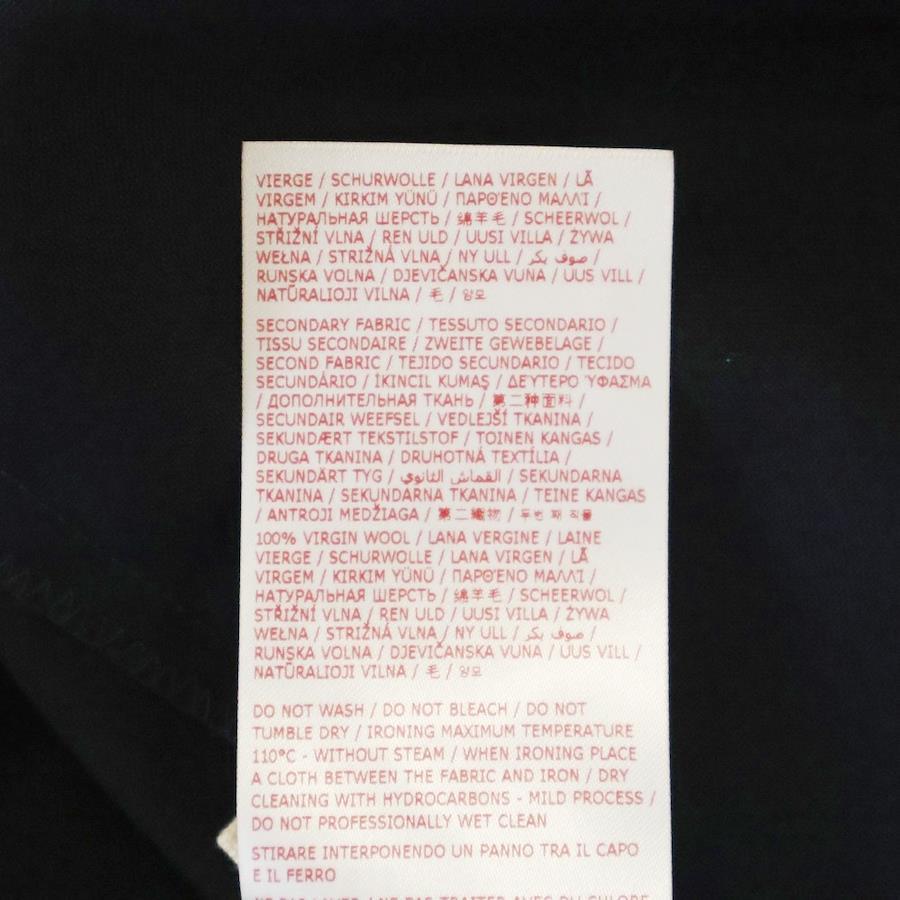 VIERGE / SCHURWOLLE / LANA VIRGEN / LÃ
VIRGEM / KIRKIM YÜNÜ / ΠΑΡΘΈΝΟ ΜΑΛΛΊ /
НАТУРАЛЬНАЯ ШЕРСТЬ / 绵羊毛 / SCHEERWOL /
STŘIŽNÍ VLNA / REN ULD / UUSI VILLA / ŻYWA
WEŁNA / STRIŽNÁ VLNA / NY ULL / صوف بكر /
RUNSKA VOLNA / DJEVIČANSKA VUNA / UUS VILL /
NATŪRALIOJI VILNA / 毛 / 양모
SECONDARY FABRIC / TESSUTO SECONDARIO /
TISSU SECONDAIRE / ZWEITE GEWEBELAGE /
SECOND FABRIC / TEJIDO SECUNDARIO / TECIDO
SECUNDÁRIO / İKINCIL KUMAŞ / ΔΕΥΤΕΡΟ ΎΦΑΣΜΑ
/ ДОПОЛНИТЕЛЬНАЯ ТКАНЬ / 第二种面料 /
SECUNDAIR WEEFSEL / VEDLEJŠÍ TKANINA /
SEKUNDÆRT TEKSTILSTOF / TOINEN KANGAS /
DRUGA TKANINA / DRUHOTNÁ TEXTÍLIA /
SEKUNDÄRT TYG / القماش الثانوي / SEKUNDARNA
TKANINA / SEKUNDARNA TKANINA / TEINE KANGAS
/ ANTROJI MEDŽIAGA / 第二織物 / 두번 째 직물
100% VIRGIN WOOL / LANA VERGINE / LAINE
VIERGE / SCHURWOLLE / LANA VIRGEN / LÃ
VIRGEM / KIRKIM YÜNÜ / ΠΑΡΘΈΝΟ ΜΑΛΛΊ /
НАТУРАЛЬНАЯ ШЕРСТЬ / 绵羊毛 / SCHEERWOL /
STŘIŽNÍ VLNA / REN ULD / UUSI VILLA / ŻYWA
WEŁNA / STRIŽNÁ VLNA / NY ULL / صوف بكر /
RUNSKA VOLNA / DJEVIČANSKA VUNA / UUS VILL /
NATŪRALIOJI VILNA / 毛 / 양모
DO NOT WASH / DO NOT BLEACH / DO NOT
TUMBLE DRY / IRONING MAXIMUM TEMPERATURE
110°C - WITHOUT STEAM / WHEN IRONING PLACE
A CLOTH BETWEEN THE FABRIC AND IRON / DRY
CLEANING WITH HYDROCARBONS - MILD PROCESS /
DO NOT PROFESSIONALLY WET CLEAN
STIRARE INTERPONENDO UN PANNO TRA IL CAPO
E IL FERRO